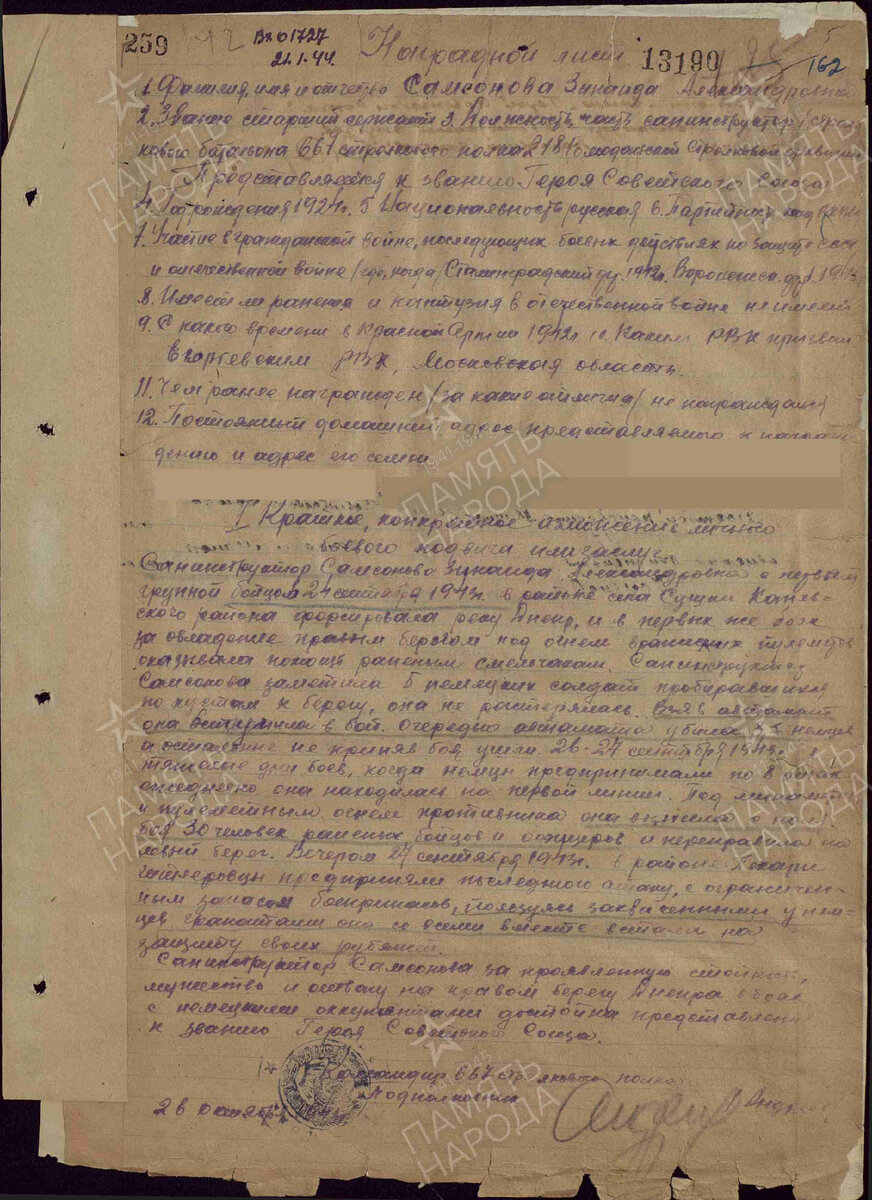 259
Вх 01727
21.1.44.
Наградной лист
13190
162
1. Фамилия, имя и отчество Самсонова Зинаида Александровна
2. Звание старший сержант 3. Должность, часть санинструктор
кового батальона 667 стрелкового полка 218 Ромоданской стрелковой дивизии
Представляется к званию Героя Советского Союза
4. Год рождения 1924 г. 5. Национальность русская 6. Партийность
7. Участие в гражданской войне, последующих боевых действиях по защите СССР
и отечественной войне /где, когда/ Сталинградский 1942 г. Воронежск. 1943
8. Имеет ли ранения и контузия в отечественной войне не имеет
9. С какого времени в Красной Армии 1942 10. Каким РВК призван
Егорьевским РВК, Московская область.
11. Чем ранее награжден /за какие отличия/ не награждалась
12. Постоянный домашний адрес представляемого к награж-
дению и адрес его семьи
I Краткое, конкретное изложение личного
боевого подвига или заслуг
Санинструктор Самсонова Зинаида Александровна с первой
группой бойцов 24 сентября 1943 г. в районе села Сушки Канев-
ского района форсировала реку Днепр, и в первых же боях
за овладение правым берегом под огнем вражеских пулеметов
оказывала помощь раненым смельчакам. Санинструктор
Самсонова заметила 5 немецких солдат пробиравшихся
по кустам к берегу, она не растерялась. Взяв автомат
она вступила в бой. Очередью автомата убила 3х немцев
а остальные не приняв боя ушли. 26-27 сентября 1943 г. в
тяжелые дни боев, когда немцы предпринимали по 8 атак
ежедневно она находилась на первой линии. Под
и пулеметным огнем противника она вынесла с поля
боя 30 человек раненых бойцов и офицеров и переправила на
левый берег. Вечером 27 сентября 1943 г. в районе Пекари
гитлеровцы предприняли последнюю атаку, с ограничен-
ным запасом боеприпасов, пользуясь захваченными у нем-
цев гранатами она со всеми вместе встала на
защиту своих рубежей.
Санинструктор Самсонова за проявленную стойкость,
мужество и отвагу на правом берегу Днепра в боях
с немецкими оккупантами достойна представления
к званию Героя Советского Союза.
Командир 667 стрелкового полка
Подполковник
26 октября
ПАМЯТЬ НАРОДА
1941-1945